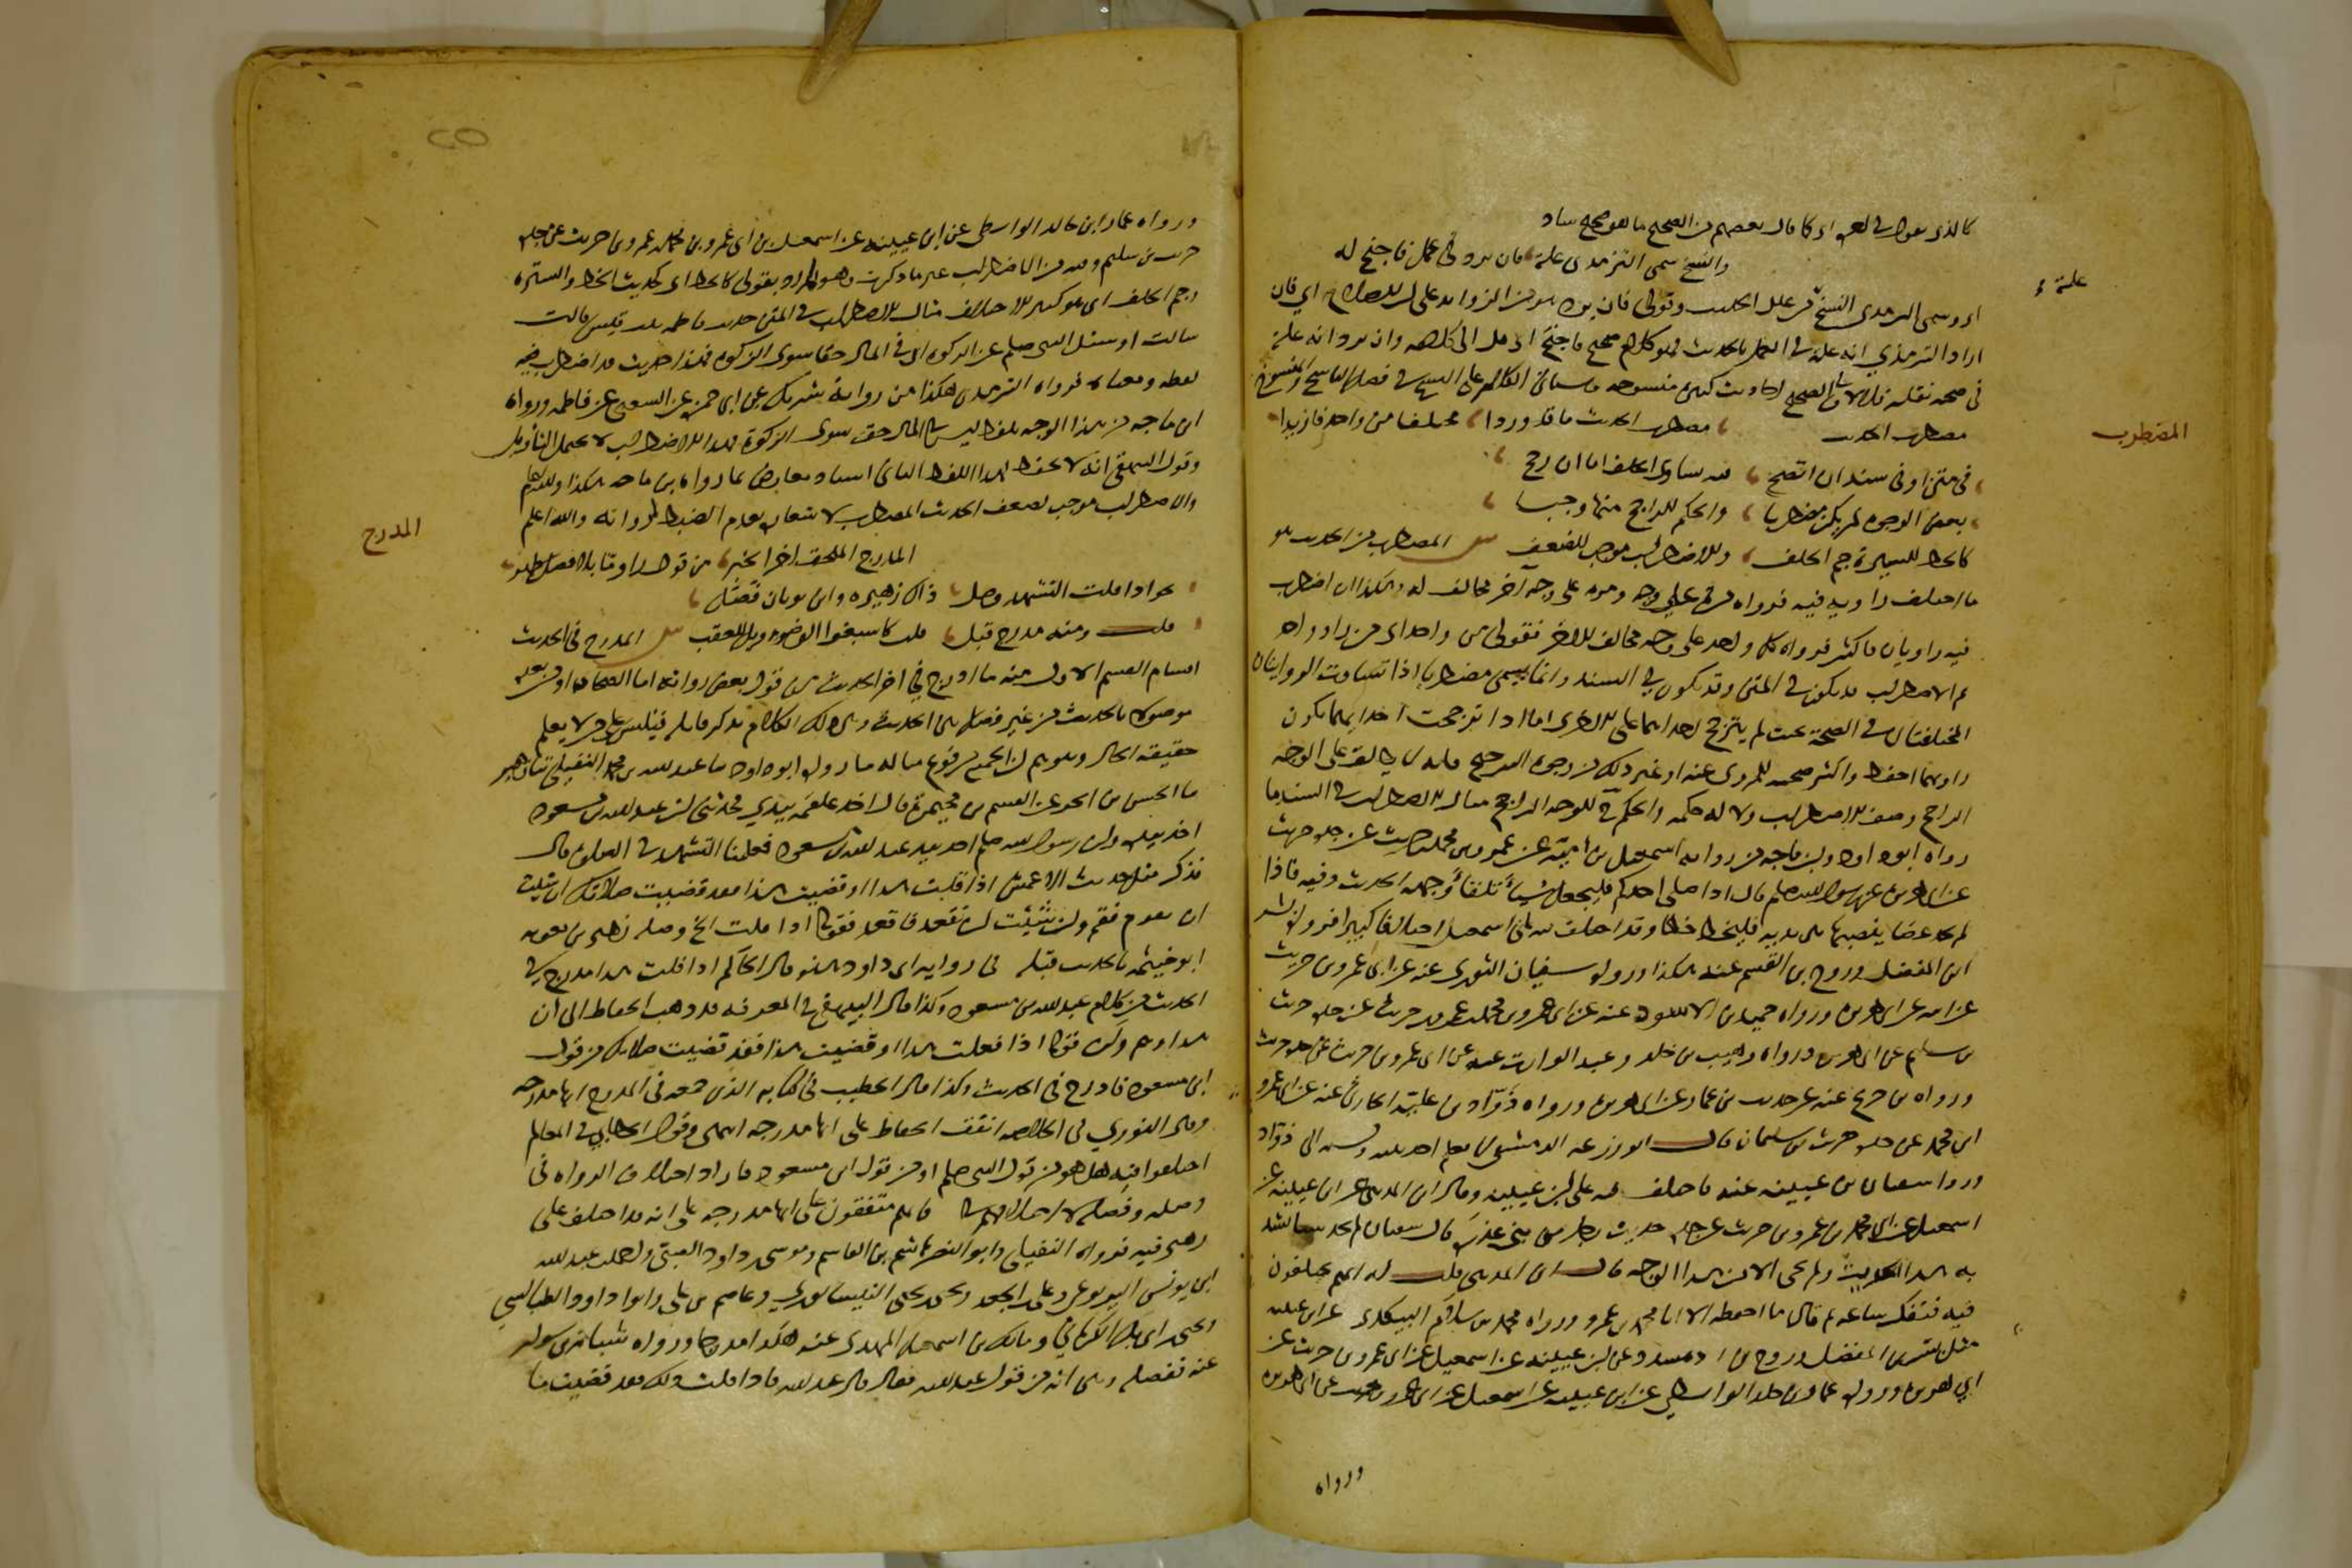 كالذي يقول في العلم او كما قال بعضهم من الصحيح ما هو صحيح شاذ
والنسخ سمى الترمذي علة فان يرد في عمل فاجنح له
علة
اي وسمى الترمذي النسخ من علل الحديث وقولي فان يرد هو من الزوائد على ابن الصلاح اي فان
اراد الترمذي انه علة في العمل بالحديث فهو كلام صحيح فاجنح اي مل الى كلامه وان يرد انه علة
في صحة نقله فلا لان في الصحيح احاديث كثيرة منسوخة وسيأتي الكلام على النسخ في فصل الناسخ والمنسوخ
المضطرب
مضطرب الحديث مضطرب الحديث ما قد وردا مختلفا من واحد فازيدا
في متن او في سند ان اتضح فيه تساوي الخلف اما ان رجح
بعض الوجوه لم يكن مضطربا والحكم للراجح منها وجبا
كالخط للسترة جم الخلف والاضطراب موجب للضعف ش المضطرب من الحديث هو
ما اختلف راويه فيه فرواه مرة على وجه ومرة على وجه آخر مخالف له وهكذا ان اضطرب
فيه راويان فاكثر فرواه كل واحد على وجه مخالف للاخر فقولي من واحد اي من راو واحد
ثم الاضطراب قد يكون في المتن وقد يكون في السند وانما يسمى مضطربا اذا تساوت الروايتان
المختلفتان في الصحة بحيث لم يترجح احداهما على الاخرى اما اذا ترجحت احداهما بكون
راويها احفظ واكثر صحبة للمروي عنه او غير ذلك من وجوه الترجيح فانه لا يطلق على الوجه
الراجح وصف الاضطراب ولا له حكمه والحكم للوجه الراجح مثال الاضطراب في السند ما
رواه ابو داود وابن ماجه من رواية اسمعيل بن امية عن عمرو بن محمد بن حريث عن جده حريث
عن ابي هريرة عن رسول الله صلعم قال اذا صلى احدكم فليجعل شيأ تلقاء وجهه الحديث وفيه فاذا
لم يجد عصا ينصبها بين يديه فليخط خطا وقد اختلف فيه على اسمعيل اختلافا كثيرا فرواه بشر
ابن المفضل وروح بن القسم عنه هكذا ورواه سفيان الثوري عنه عن ابي عمرو بن حريث
عن ابيه عن ابي هريرة ورواه حميد بن الاسود عنه عن ابي عمرو بن محمد بن عمرو بن حريث عن جده حريث
بن سليم عن ابي هريرة ورواه وهيب بن خالد وعبد الوارث عنه عن ابي عمرو بن حريث عن جده حريث
ورواه بن جريج عنه عن حريث بن عمار عن ابي هريرة ورواه ذواد بن علبة الحارثي عنه عن ابي عمرو
ابن محمد عن جده حريث بن سليمان قال ابو زرعة الدمشقي لا نعلم احدا بينه ونسبه الى ذواد
ورواه سفيان بن عيينة عنه فاختلف فيه على ابن عيينة وقال ابن المديني عن ابن عيينة عن
اسمعيل عن ابي محمد بن عمرو بن حريث عن جده حريث رجل من بني عذرة قال سفيان لم نجد شيأ نشد
به هذا الحديث ولم يجئ الا من هذا الوجه قال ابن المديني قلت له انهم يختلفون
فيه فتفكر ساعة ثم قال ما احفظه الا ابا محمد بن عمرو ورواه محمد بن سلام البيكندي عن ابن عيينة
مثل بشر بن المفضل وروح بن مسدد عن ابن عيينة عن اسمعيل عن ابي عمرو بن حريث عن
ابي هريرة ورواه عمار بن خالد الواسطي عن ابن عيينة عن اسمعيل عن ابي عمرو بن حريث عن ابي هريرة
ورواه
ورواه عمار ابن خالد الواسطي عن ابن عيينة عن اسمعيل بن ابي عمرو بن محمد بن عمرو بن حريث عن جده
حريث بن سليم وفيه من الاضطراب غير ما ذكرت وهو المراد بقولي كالخط اي كحديث الخط والسترة
وجم الخلف اي هو كثير الاختلاف مثال الاضطراب في المتن حديث فاطمة بنت قيس قالت
سالت او سئل النبي صلعم عن الزكوة ان في المال حقا سوى الزكوة فهذا حديث قد اضطرب فيه
لفظه ومعناه فرواه الترمذي هكذا من رواية شريك عن ابي حمزة عن الشعبي عن فاطمة ورواه
ابن ماجه من هذا الوجه بلفظ ليس في المال حق سوى الزكوة فهذا الاضطراب لا يحتمل التأويل
وقول البيهقي انه لا يحفظ لهذا اللفظ الثاني اسناد معارض بما رواه بن ماجه هكذا والله اعلم
والاضطراب موجب لضعف الحديث المضطرب لاشعاره بعدم الضبط لرواته والله اعلم
المدرج
المدرج الملحق اخر الخبر من قول راو ما بلا فصل ظهر
نحو اذا قلت التشهد وصل ذاك زهير وابن ثوبان فصل
قلت ومنه مدرج قبل قلب كاسبغوا الوضوء ويل للعقب ش المدرج في الحديث
اقسام القسم الاول منه ما ادرج في اخر الحديث من قول بعض رواته اما الصحابي او من بعده
موصولا بالحديث من غير فصل بين الحديث وبين ذلك الكلام بذكر قايله فيلتبس على من لا يعلم
حقيقة الحال ويتوهم ان الجميع مرفوع مثاله ما رواه ابو داود ثنا عبد الله بن محمد النفيلي ثنا زهير
ثنا الحسن بن الحر عن القسم بن مخيمرة قال اخذ علقمة بيدي فحدثني ان عبد الله بن مسعود
اخذ بيده وان رسول الله صلعم اخذ بيد عبد الله بن مسعود فعلمنا التشهد في الصلوة قال
فذكر مثل حديث الاعمش اذا قلت هذا او قضيت هذا فقد قضيت صلاتك ان شئت
ان تقوم فقم وان شئت ان تقعد فاقعد فقوله اذا قلت الخ وصله زهير بن معوية
ابو خيثمة بالحديث قبله في رواية ابي داود هذه وقال الحاكم اذا قلت هذا مدرج في
الحديث من كلام عبد الله بن مسعود وكذا قال البيهقي في المعرفة قد ذهب الحفاظ الى ان
هذا وهم وان قوله اذا فعلت هذا او قضيت هذا فقد قضيت صلاتك من قول
ابن مسعود فادرج في الحديث وكذا قال الخطيب في كتابه الذي جمعه في المدرج انها مدرجة
وقال النووي في الخلاصة اتفق الحفاظ على انها مدرجة انتهى وقول الخطابي في المعالم
اختلفوا فيه هل هو من قول النبي صلعم او من قول ابن مسعود فاراد اختلاف الرواة في
وصله وفصله لا اختلاف الحفاظ فانهم متفقون على انها مدرجة على انه قد اختلف على
زهير فيه فرواه النفيلي وابو النضر هاشم بن القاسم وموسى بن داود الضبي واحمد بن عبد الله
ابن يونس اليربوعي وعلي بن الجعد ويحيى بن يحيى النيسابوري وعاصم بن علي وابو داود الطيالسي
ويحيى بن ابي بكير الكرماني ومالك بن اسمعيل النهدي عنه هكذا مدرجا ورواه شبابة بن سوار
عنه ففصله وبين انه من قول عبد الله فقال قال عبد الله فاذا قلت ذلك فقد قضيت ما